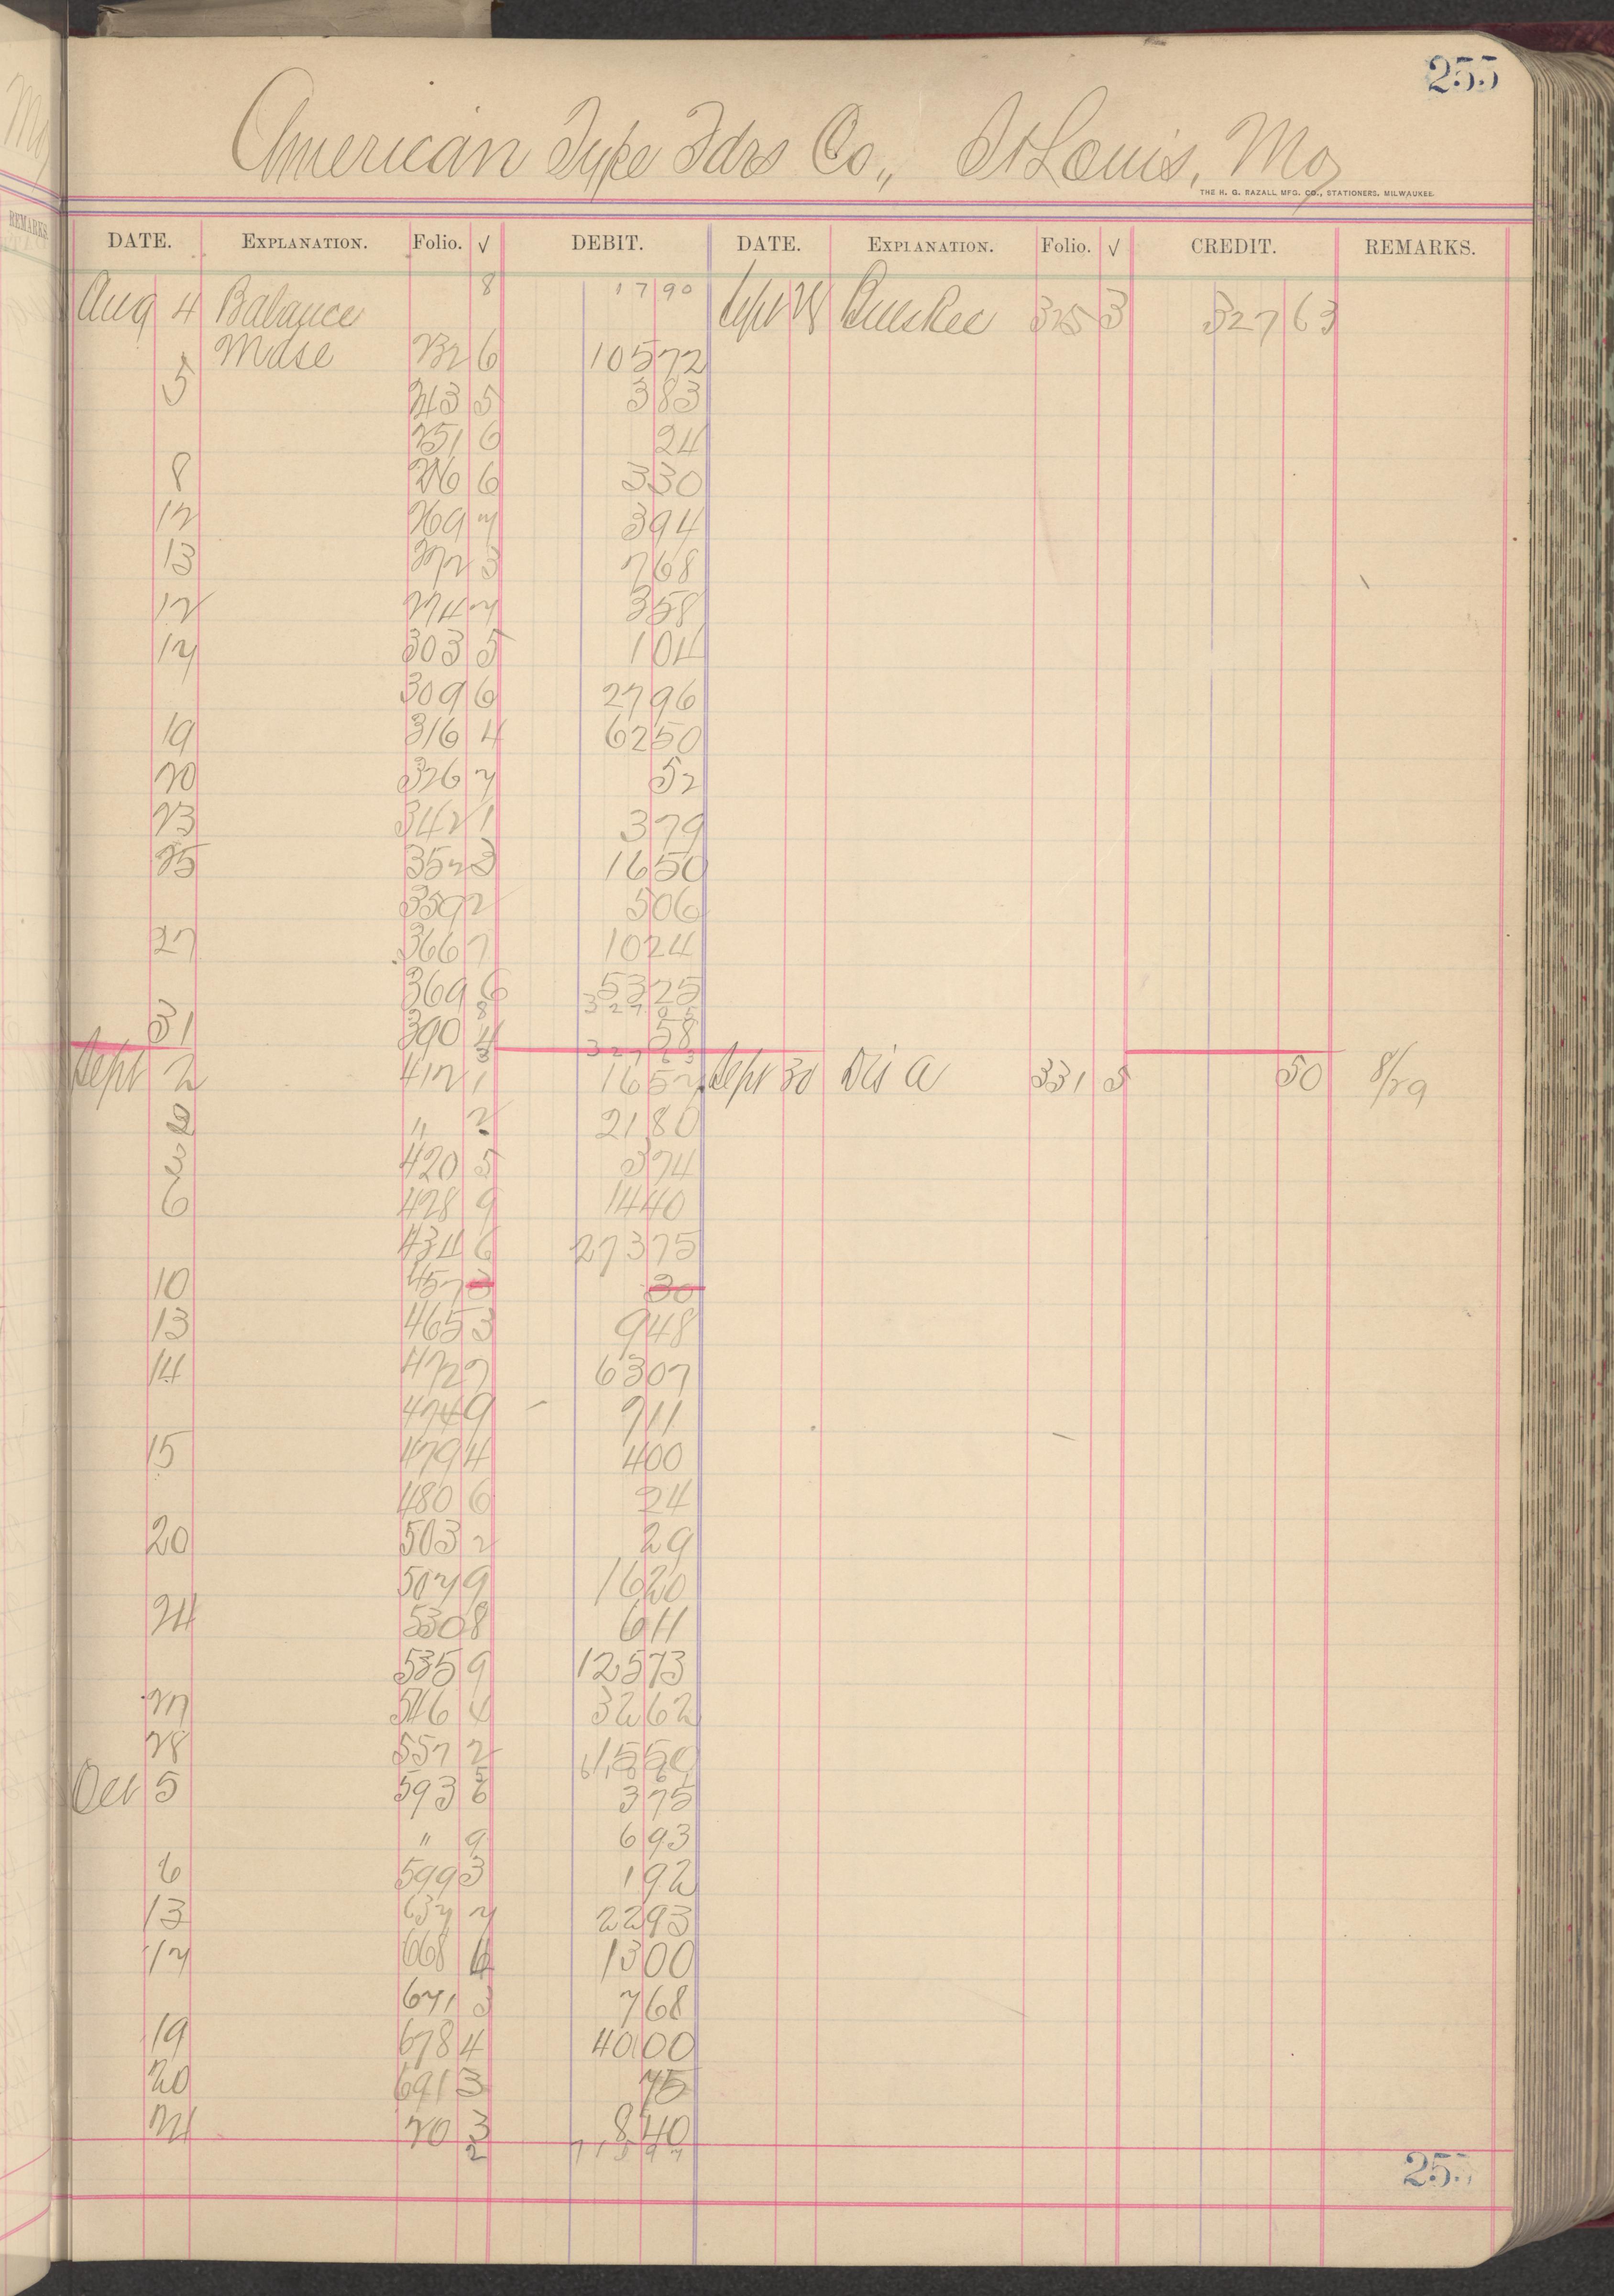 255
American Type Fdrs Co., St Louis, Mo
THE H. G. RAZALL MFG. CO., STATIONERS, MILWAUKEE.
DATE. EXPLANATION. Folio. √ DEBIT. DATE. EXPLANATION. Folio. √ CREDIT. REMARKS.
Aug 4 Balance 8 17 90 Sept 28 325 3 327 63
Mdse 232 6 105 72
5 243 5 3 83
251 6 24
8 6 3 30
12 269 7 3 94
13 272 3 7 68
12 274 7 3 58
17 303 5 1 04
309 6 27 96
19 316 4 62 50
20 326 7 52
23 342 1 3 79
25 352 3 16 50
359 2 5 06
27 366 7 10 24
369 6 53 25
8 327 05
31 390 4 58
3 327 63
Sept 2 412 1 16 52 Sept 30 Dis a 331 5 50 8/29
2 " 2 21 80
3 420 5 3 74
6 428 9 14 40
434 6 273 75
10 457 3 30
13 465 3 9 48
14 472 7 63 07
474 9 7 11
15 479 4 4 00
480 6 24
20 503 2 29
507 9 16 20
24 530 8 6 11
535 9 125 73
27 546 4 32 62
28 557 2 15 50
Oct 5 593 6 3 75
" 9 6 93
6 599 3 1 92
13 637 7 22 93
17 668 4 13 00
671 3 7 68
19 678 4 40 00
20 691 3 75
24 70 3 8 40
2 715 97
255